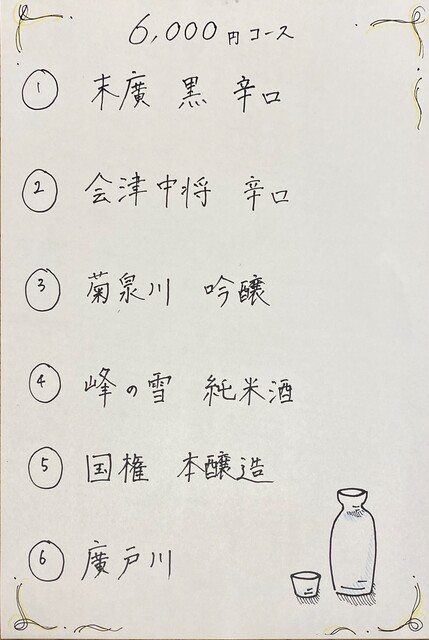 6,000円コース
① 末廣 黒 辛口
② 会津中将 辛口
③ 菊泉川 吟醸
④ 峰の雪 純米酒
⑤ 国権 本醸造
⑥ 廣戸川